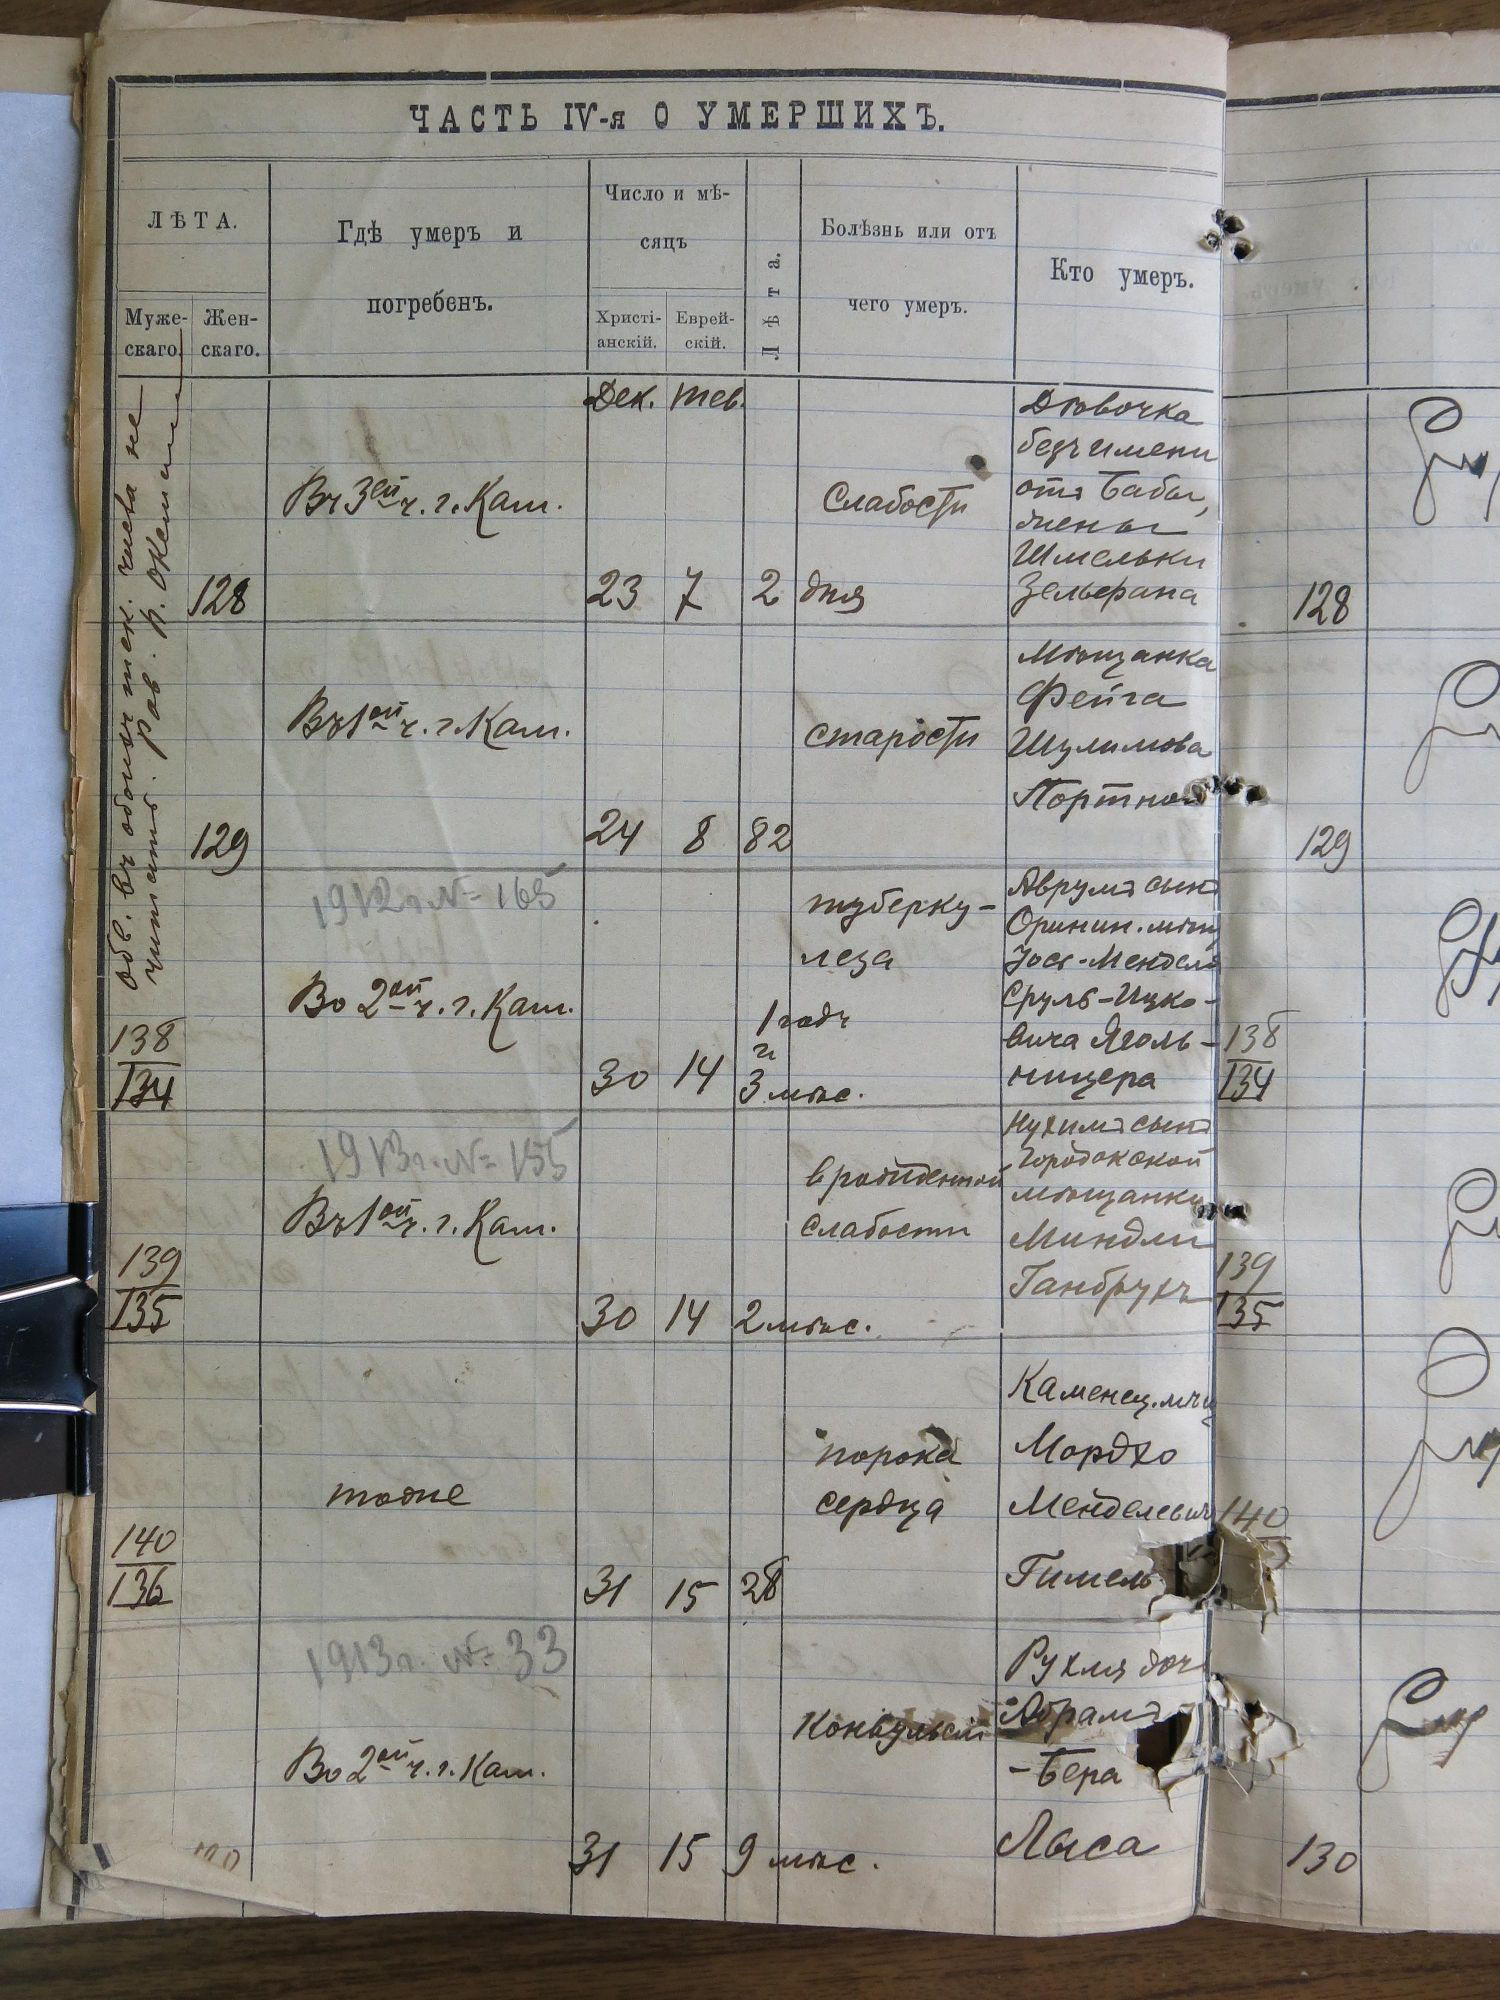 ЧАСТЬ IV-я О УМЕРШИХЪ.
ЛѢТА.
Муже-
скаго.
Жен-
скаго.
Гдѣ умеръ и
погребенъ.
Число и мѣ-
сяцъ
Христі-
анскій.
Еврей-
скій.
Лѣта.
Болѣзнь или отъ
чего умеръ.
Кто умеръ.
Дек. Тев.
128
Въ 3ей ч. г. Кам.
23 7 2 дня
Слабости
Дѣвочка
безъ имени
отъ Бабы,
жены
Шмельки
Зельфана
128
129
Въ 1ой ч. г. Кам.
24 8 82
старости
Мѣщанка
Фейга
Шулимова
Портной
129
1912 г. № 165
138
134
Во 2ой ч. г. Кам.
30 14
1 годъ
и
3 мѣс.
туберку-
леза
Аврумъ сынъ
Оринин. мѣщ
Іось-Менделя
Сруль-Ицко-
вича Яголь-
ницера
138
134
1913 г. № 155
139
135
Въ 1ой ч. г. Кам.
30 14 2 мѣс.
врожденной
слабости
Нухимъ сынъ
Городокской
мѣщанки
Миндли
Ганбрухъ
139
135
140
136
тоже
31 15 28
порока
сердца
Каменец. мѣщ
Мордхо
Менделевич
Гимель
140
1913 г. № 33
Во 2ой ч. г. Кам.
31 15 9 мѣс.
Конвульсій
Рухля доч
Абрама
-Бера
Лыса
130
Обв. въ обоихъ тек. числа не
читать. Рав. р.